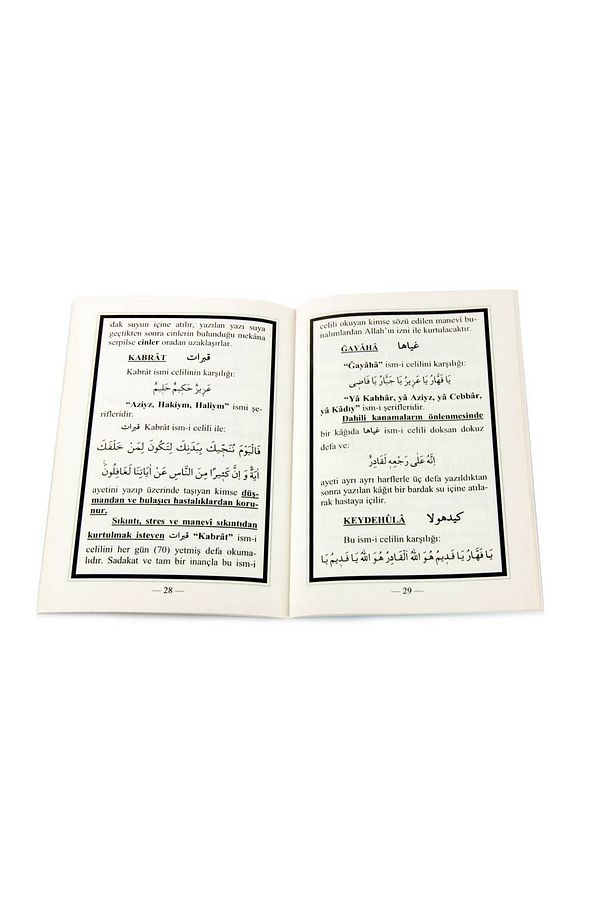 dak suyun içine atılır, yazılan yazı suya
geçtikten sonra cinlerin bulunduğu mekâna
serpilse cinler oradan uzaklaşırlar.
KABRÂT قبرات
Kabrât ismi celilinin karşılığı:
عَزِيزٌ حَكِيمٌ حَلِيمٌ
“Aziyz, Hakiym, Haliym” ismi şe-
rifleridir.
قبرات Kabrât ism-i celili ile:
فَالْيَوْمَ نُنَجِّيكَ بِبَدَنِكَ لِتَكُونَ لِمَنْ خَلْفَكَ
اٰيَةً وَ اِنَّ كَثِيرًا مِنَ النَّاسِ عَنْ اٰيَاتِنَا لَغَافِلُونَ
ayetini yazıp üzerinde taşıyan kimse düş-
mandan ve bulaşıcı hastalıklardan koru-
nur.
Sıkıntı, stres ve manevi sıkıntıdan
kurtulmak isteyen قبرات “Kabrât” ism-i
celilini her gün (70) yetmiş defa okuma-
lıdır. Sadakat ve tam bir inançla bu ism-i
— 28 —
celili okuyan kimse sözü edilen manevi bu-
nalımlardan Allah’ın izni ile kurtulacaktır.
ĞAYÂHÂ غياها
“Ğayâhâ” ism-i celilini karşılığı:
يَا قَهَّارُ يَا عَزِيزُ يَا جَبَّارُ يَا قَاضِى
“Yâ Kabhâr, yâ Aziyz, yâ Cebbâr,
yâ Kâdıy” ism-i şerifleridir.
Dahili kanamaların önlenmesinde
bir kâğıda غياها ism-i celili doksan dokuz
defa ve:
اِنَّهُ عَلٰى رَجْعِهِ لَقَادِرٌ
ayeti ayrı ayrı harflerle üç defa yazıldıktan
sonra yazılan kâğıt bir bardak su içine atıla-
rak hastaya içilir.
KEYDEHÛLÂ كيدهولا
Bu ism-i celilin karşılığı:
يَا قَهَّارُ يَا قَدِيمُ هُوَ اللّٰهُ الْقَادِرُ هُوَ اللّٰهُ يَا قَدِيمُ يَا
— 29 —